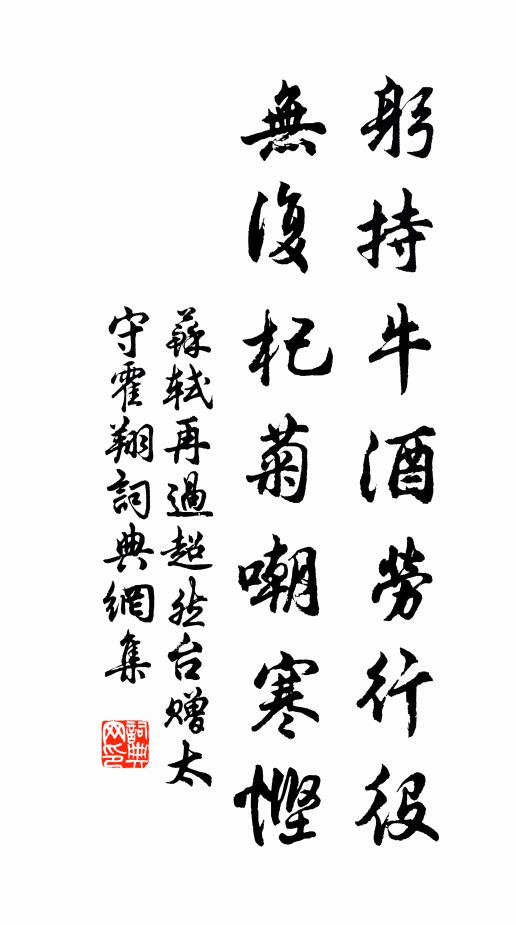 躬持牛酒勞行役
無復杞菊嘲寒慳
蘇軾再過超然台赠太
守霍翔詞典網集
詞典
文印